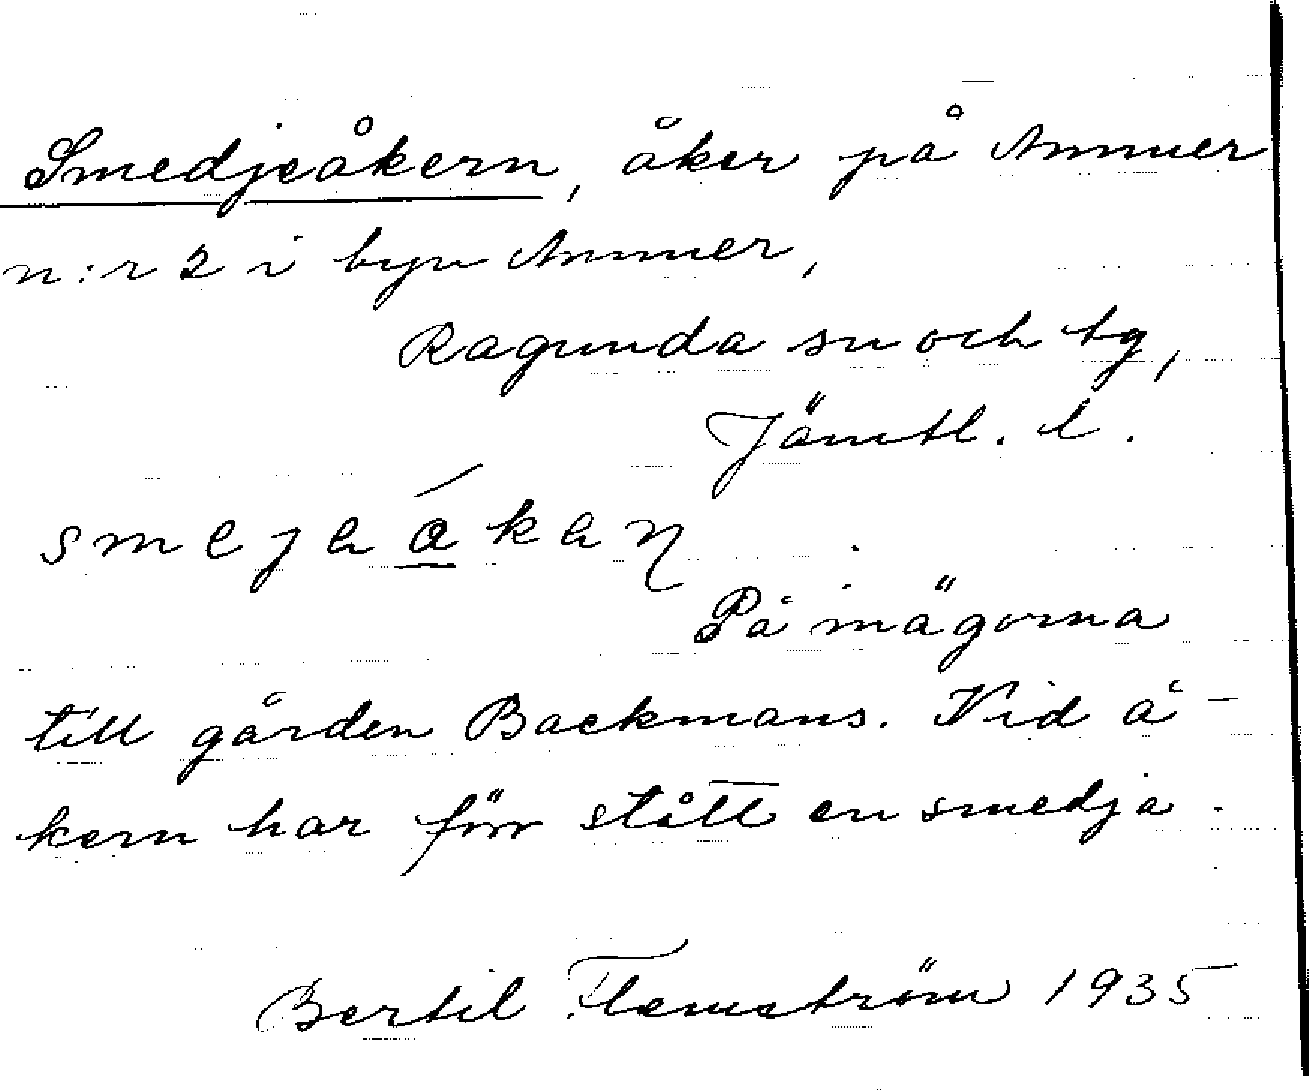 Smedjeåkern, åker på Ammer
n:r 2 i byn Ammer,
Ragunda sn och tg,
Jämtl. l.
På inägorna
till gården Backmans. Vid å-
kern har förr stått en smedja.
Bertil Flemström 1935